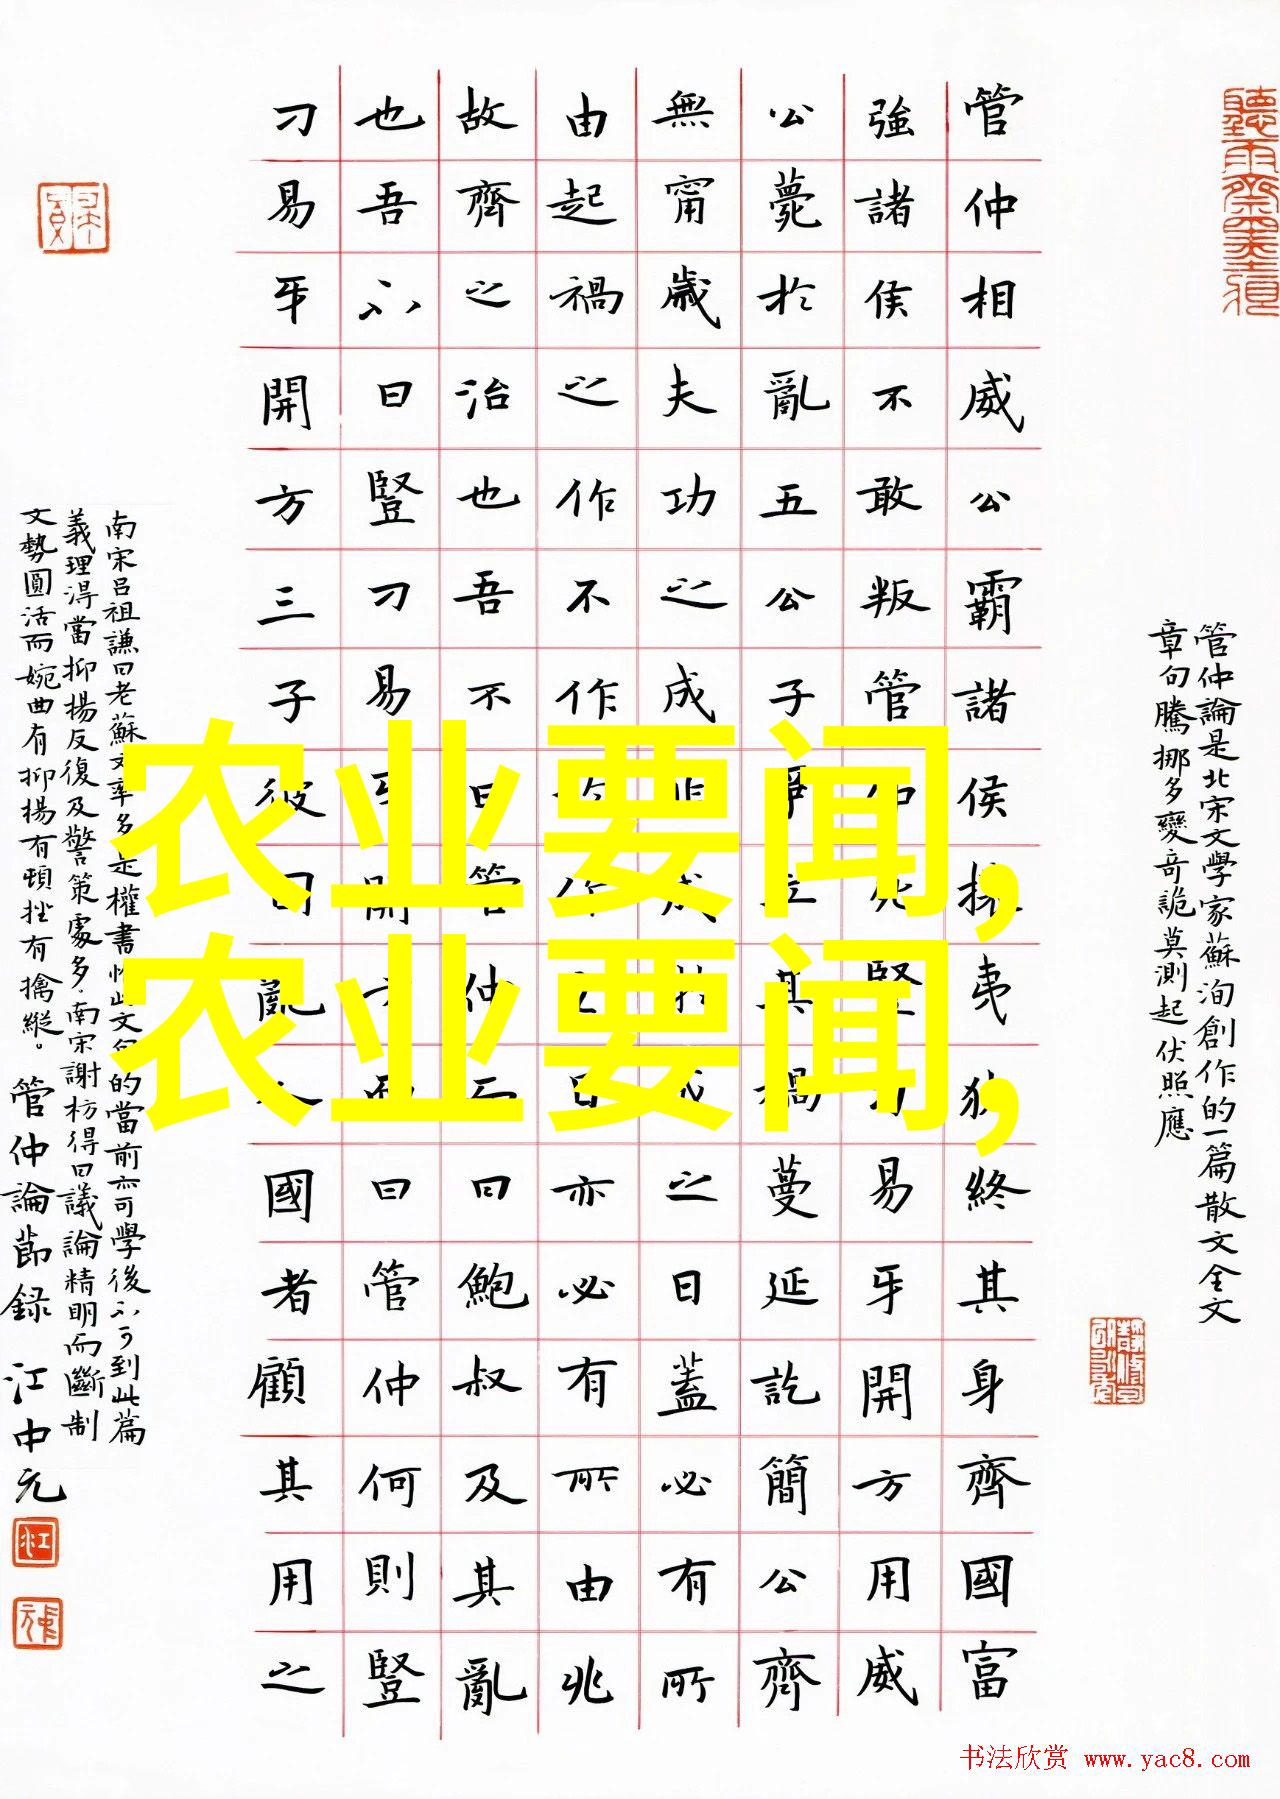 管仲論是北宋文學家蘇洵創作的一篇散文全文
章句騰挪多變奇詭莫測起伏照應
管仲相威公霸諸侯攘夷狄終其身齊國富
強諸侯不敢叛管仲死豎刁易牙開方用威
公薨於亂五公子爭立其禍蔓延訖簡公齊
無甯歲夫功之成非成於成之日蓋必有所
由起禍之作不作於作之日亦必有所由兆
故齊之治也吾不曰管仲而曰鮑叔及其亂
也吾不曰豎刁易牙開方而曰管仲何則豎
刁易牙開方三子彼固亂人國者顧其用之
南宋呂祖謙曰老蘇文率多是權書惟此文句的當前亦可學後不可到此篇
義理淂當抑揚反復及警策處多.南宋謝枋得曰議論精明而斷制
文勢圓活而婉曲有抑揚有頓挫有擒縱。管仲論節録 江中元
农业要闻,
农业要闻,
书法欣赏 www.yac8.com